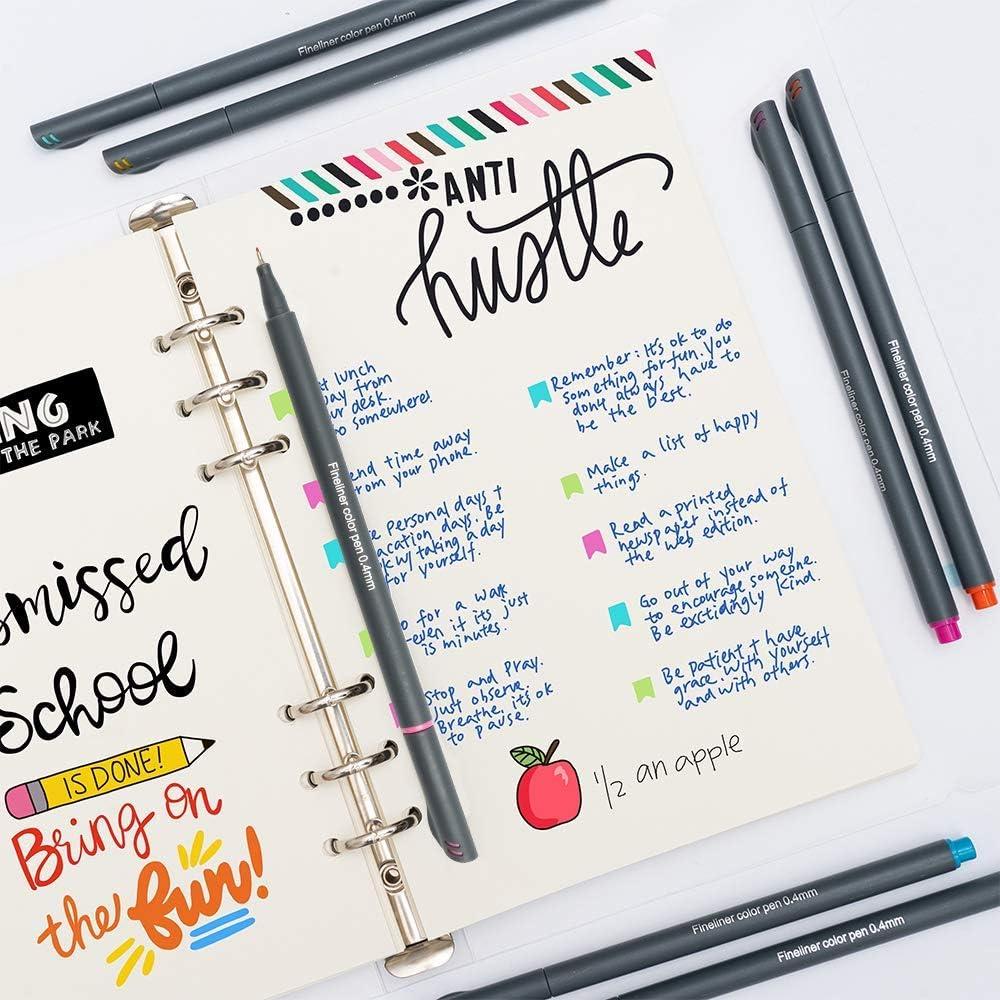 Fineliner color pen 0.4mm
ANTI
hustle
lunch
from
desk.
somewhere!
time away
from your phone.
Personal days +
days. Be
taking a day
for yourself.
for a walk
even if its just
is minutes.
Stop and Pray.
Just observe.
Breathe. it's ok
to pause.
Remember: It's ok to do
something for fun. You
dony always have to
be the best.
Make a list of happy
things.
Read a printed
newspaper instead of
the web edition.
Go out of your way
to encourage someone.
Be exctidingly kind.
Be patient + have
grace with yourself
and with others.
1/2 an apple
Fineliner color pen 0.4mm
Fineliner color pen 0.4mm
Fineliner color pen 0.4mm
THE PARK
School
IS DONE!
Bring on
the fun!
Fineliner color pen 0.4mm
Fineliner color pen 0.4mm